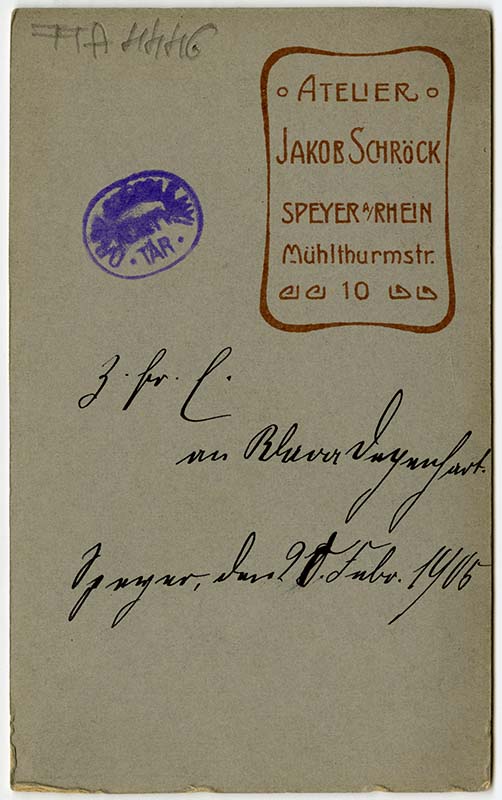 ATELIER
JAKOB SCHRÖCK
SPEYER A/RHEIN
Mühlthurmstr.
10
TÁR
Z. fr. E.
an Klara Degenhart.
Speyer, den Febr. 1905